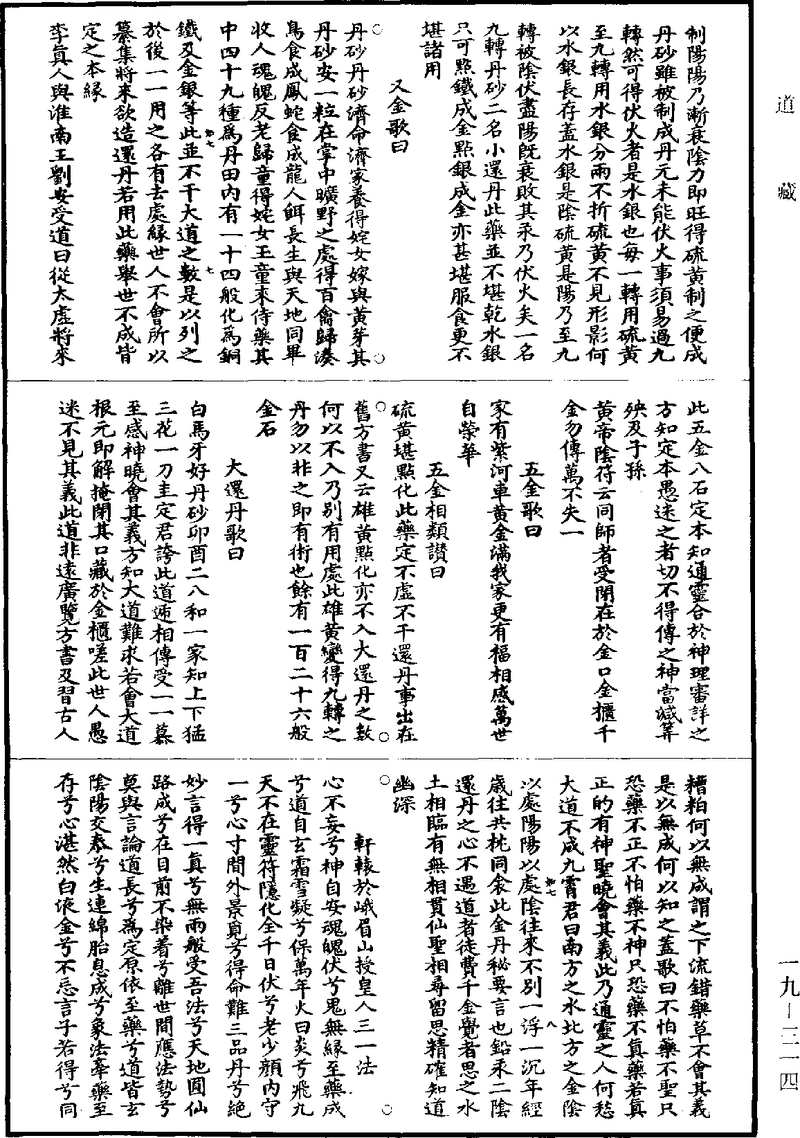 道藏
制陽陽乃漸衰陰力即旺得硫黃制之便成
丹砂雖被制成丹元未能伏火事須易過九
轉然可得伏火者是水銀也每一轉用硫黃
至九轉用水銀分兩不折硫黃不見形影何
以水銀長存蓋水銀是陰硫黃是陽乃至九
轉被陰伏盡陽旣衰敗其汞乃伏火矣一名
九轉丹砂二名小還丹此藥並不堪乾水銀
只可點鐵成金點銀成金亦甚堪服食更不
堪諸用
又金歌曰
丹砂丹砂濟命濟家養得姹女嫁與黃芽其
丹砂安一粒在掌中曠野之處得百禽歸湊
鳥食成鳳蛇食成龍人餌長生與天地同畢
收人魂魄反老歸童得姹女玉童來侍藥其
中四十九種爲丹田內有一十四般化爲銅
鐵及金銀等此並不干大道之數是以列之
於後一一用之各有去處緣世人不會所以
纂集將來欲造還丹若用此藥舉世不成皆
定之本緣
李真人與淮南王劉安受道曰從太虛將來
此五金八石定本知通靈合於神理審詳之
方知定本愚迷之者切不得傳之神當減筭
殃及子孫
黃帝陰符云同師者受閉在於金口金櫃千
金勿傳萬不失一
五金歌曰
家有紫河車黃金滿我家更有福相感萬世
自榮華
五金相類讚曰
硫黃堪點化此藥定不虛不干還丹事出在
舊方書又云雄黃點化亦不入大還丹之數
何以不入乃別有用處此雄黃變得九轉之
丹勿以非之即有術也餘有一百二十六般
金石
大還丹歌曰
白馬牙好丹砂卯酉二八和一家知上下猛
三花一刀圭定君誇此道遞相傳受一一慕
至感神曉會其義方知大道難求若會大道
根元即解掩閉其口藏於金櫃嗟此世人愚
迷不見其義此道非遠廣覽方書及習古人
糟粕何以無成謂之下流錯藥草不會其義
是以無成何以知之蓋歌曰不怕藥不聖只
恐藥不正不怕藥不神只恐藥不真藥若真
正的有神聖曉會其義此乃通靈之人何愁
大道不成九霄君曰南方之水北方之金陰
以處陽陽以處陰往來不別一浮一沉年經
歲往共枕同衾此金丹秘要言也鉛汞二陰
還丹之心不遇道者徒費千金覺者思之水
土相臨有無相貫仙聖相尋留思精確知道
幽深
軒轅於峨眉山授皇人三一法
心不妄兮神自安魂魄伏兮鬼無緣至藥成
兮道自玄霜雪凝兮保萬年火曰炎兮飛九
天不在靈符隱化全千日伏兮老少顏內守
一兮心寸間外景真兮得命難三品丹兮絕
妙言得一真兮無兩般受吾法兮天地圓仙
路成兮在目前不染着兮離世間應法勢兮
莫與言論道長兮爲定原依至藥兮道皆玄
陰陽交泰兮生連綿胎息成兮象法牽藥至
存兮心湛然白液金兮不忘言子若得兮同
一九－三一四